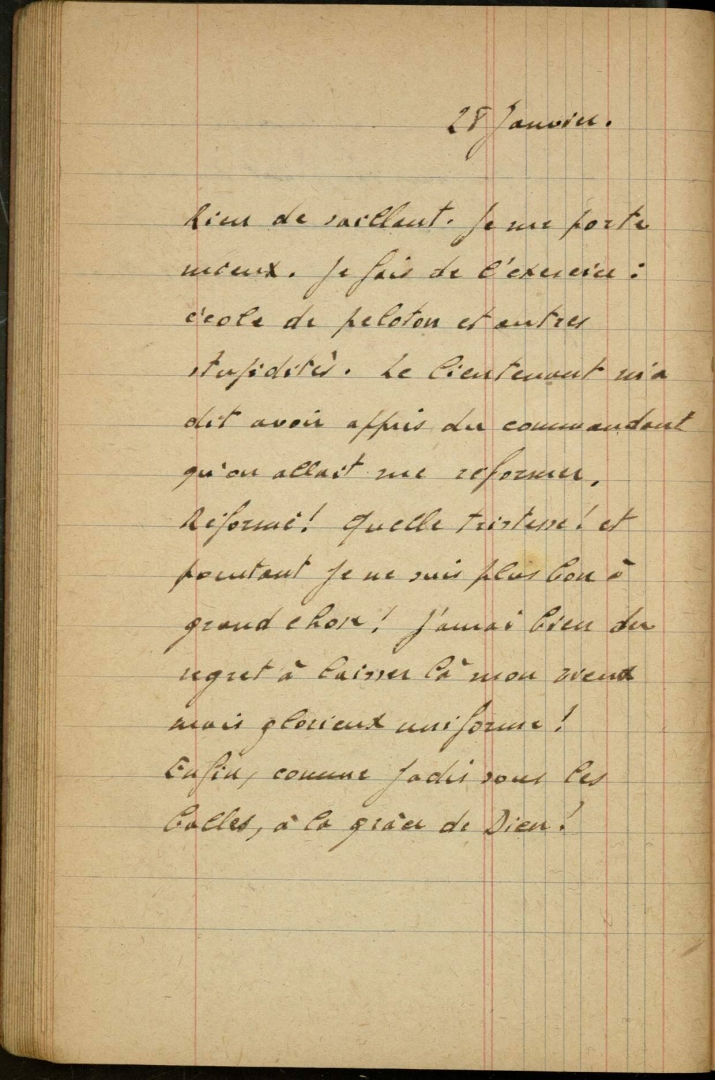 28 Janvier.
Rien de saillant. Je me porte
mieux. Je fais de l'exercice :
école de peloton et autres
stupidités. Le lieutenant m'a
dit avoir appris du commandant
qu'on allait me réformer.
Réformé! Quelle tristesse! et
pourtant je ne suis plus bon à
grand chose! J'aurai bien du
regret à laisser là mon vieux
mais glorieux uniforme!
Enfin, comme jadis sous les
balles, à la grâce de Dieu!